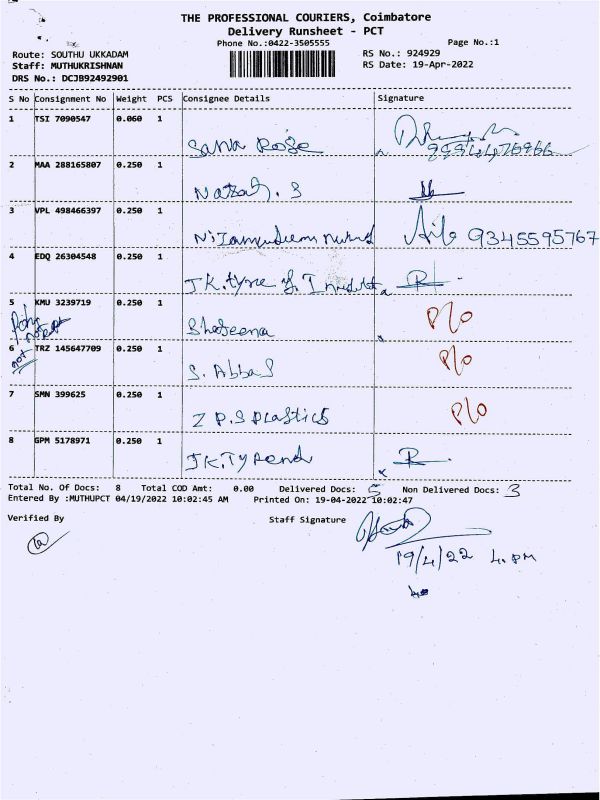 THE PROFESSIONAL COURIERS, Coimbatore
Delivery Runsheet - PCT
Phone No.:0422-3505555 Page No.:1
Route: SOUTHU UKKADAM RS No.: 924929
Staff: MUTHUKRISHNAN RS Date: 19-Apr-2022
DRS No.: DCJB92492901
S No Consignment No Weight PCS Consignee Details Signature
1 TSI 7090547 0.060 1
Sana Rose
2 MAA 288165807 0.250 1
3 VPL 498466397 0.250 1
9345595767
4 EDQ 26304548 0.250 1
JK. tyre
5 KMU 3239719 0.250 1
P/o
6 TRZ 145647709 0.250 1
not
S. Abbas P/o
7 SMN 399625 0.250 1
Z P.S Plastics P/o
8 GPM 5178971 0.250 1
Total No. Of Docs: 8 Total COD Amt: 0.00 Delivered Docs: 5 Non Delivered Docs: 3
Entered By :MUTHUPCT 04/19/2022 10:02:45 AM Printed On: 19-04-2022 10:02:47
Verified By Staff Signature
19/4/22 4. PM